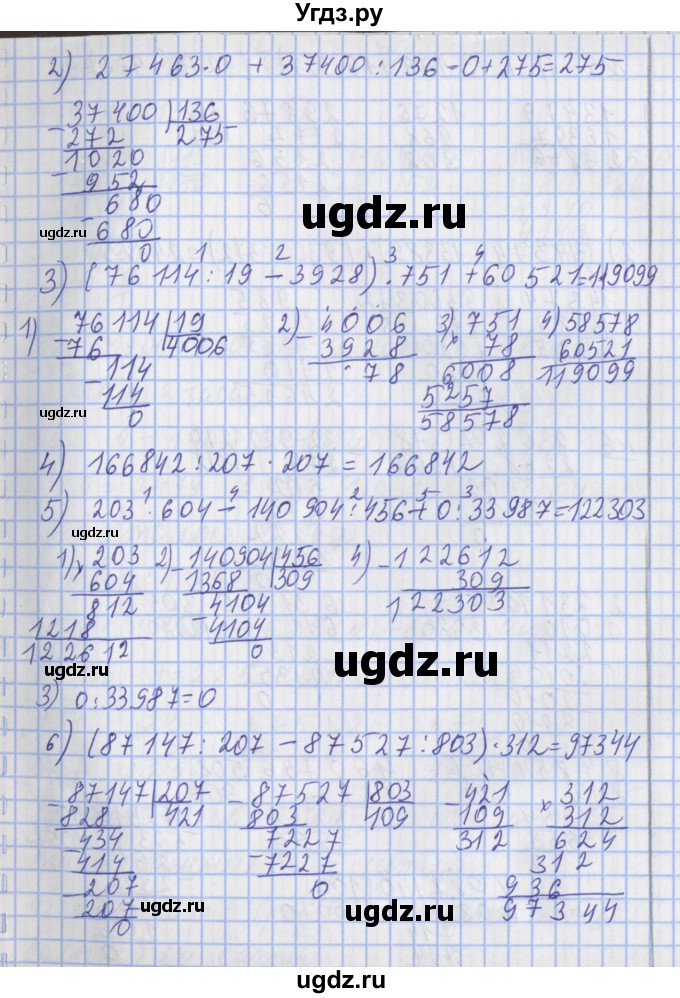 Угдз.ру
2) 27463·0 + 37400 : 136 - 0 + 275 = 275
37400 136
- 272 275
1020
- 952
680
- 680
ugdz.ru 0
ugdz.ru
1 2 3 4
3) (76114 : 19 - 3928) · 751 + 60521 = 119099
1) 76114 19
- 76 4006
- 114
114
0
2) - 4006
3928
78
3) × 751
78
6008
5257
58578
4) 58578
60521
119099
ugdz.ru
4) 166842 : 207 · 207 = 166842
1 4 2 5 3
5) 203 · 604 - 140904 : 456 + 0 : 33987 = 122303
ugdz.ru
1) × 203
604
812
1218
122612
2) - 140904 456
1368 309
- 4104
4104
0
4) - 122612
309
122303
ugdz.ru
ugdz.ru
3) 0 : 33987 = 0
6) (87147 : 207 - 87527 : 803) · 312 = 97344
- 87147 207
828 421
- 434
414
- 207
207
0
- 87527 803
803 109
- 7227
7227
0
- 421
109
312
× 312
312
624
312
936
97344
ugdz.ru
ugdz.ru
ugdz.ru